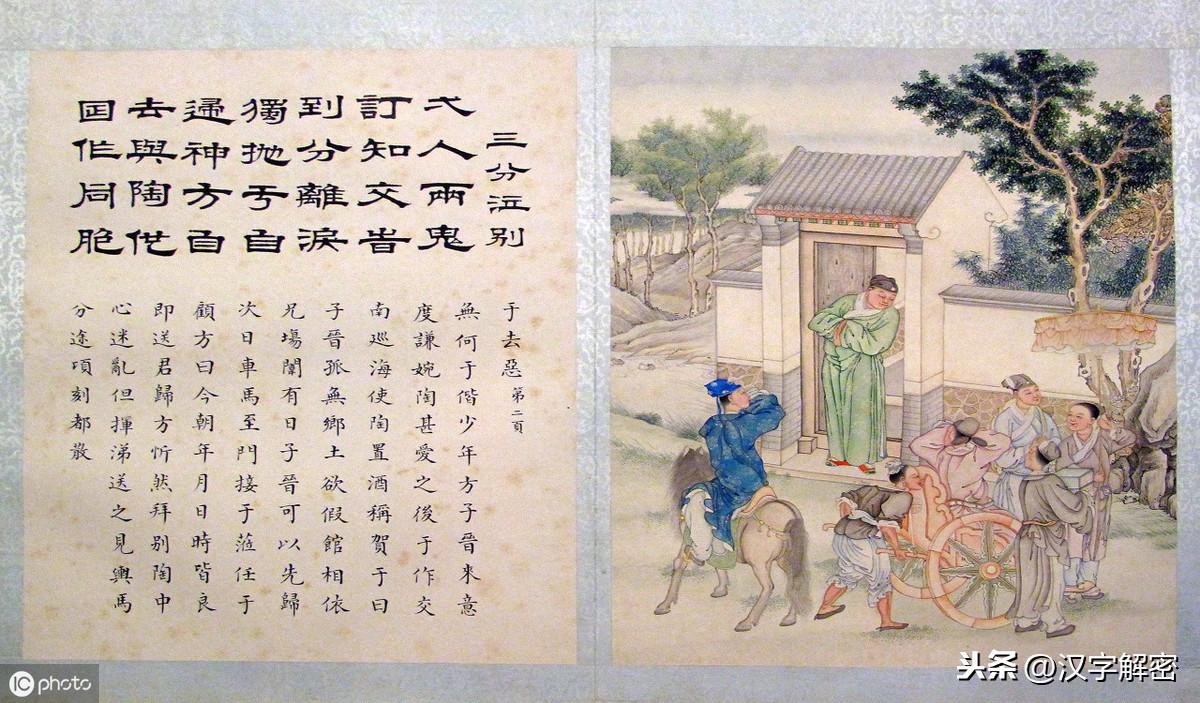 三分泣别
弌人兩鬼
訂知交旹
到分離淚
獨抛于自
歸神方自
去與陶他
日作同胞
于去惡 第二頁
無何于偕少年方子晉來意
度謙婉陶甚愛之後于作交
南巡海使陶置酒稱賀于曰
子晉孤無鄉土欲假館相依
兄場闈有日子晉可以先歸
次日車馬至門接于蒞任于
顧方曰今朝年月日時皆良
即送君歸方忻然拜别陶中
心迷亂但揮涕送之見輿馬
分途頃刻都散
IC photo
头条 @汉字解密